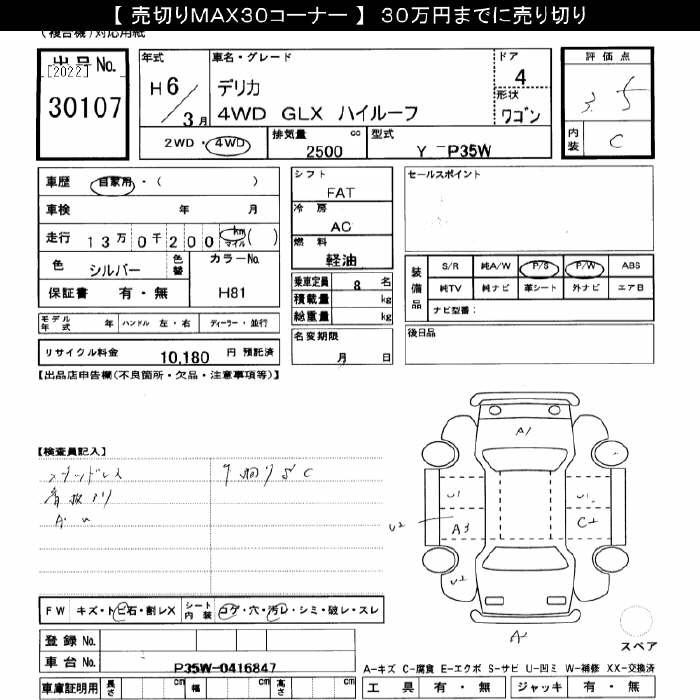 【 売切りMAX30コーナー 】 30万円までに売り切り
(複合機)対応用紙
出品No.
[2022]
30107
年式
H6/3月
車名・グレード
デリカ
4WD GLX ハイルーフ
ドア
4
形状
ワゴン
評価点
3.5
内装
C
2WD・4WD
排気量 cc
2500
型式
Y -P35W
車歴 自家用・( )
車検 年 月
走行 13万0千200 km マイル ( )
色 シルバー
色替
カラーNo.
H81
保証書 有・無
シフト
FAT
冷房
AC
燃料
軽油
乗車定員 8 名
積載量 kg
総重量 kg
名変期限
月 日
セールスポイント
装備品
S/R 純A/W P/S P/W ABS
純TV 純ナビ 革シート 外ナビ エアB
ナビ型番:
後日品
モデル年式 年 ハンドル 左・右 ディーラー・並行
リサイクル料金 10,180 円 預託済
【出品店申告欄(不良箇所・欠品・注意事項等)】
【検査員記入】
スタッドレス
A1
U1
U1
U2
A3
C2
U2
A2
FW キズ・トビ石・割レX
シート内装 コゲ・穴・汚レ・シミ・破レ・スレ
登録 No.
車台 No. P35W-0416847
車庫証明用 長さ cm 幅 cm 高さ cm
スペア
A-キズ C-腐食 E-エクボ S-サビ U-凹ミ W-補修 XX-交換済
工具 有・無 ジャッキ 有・無